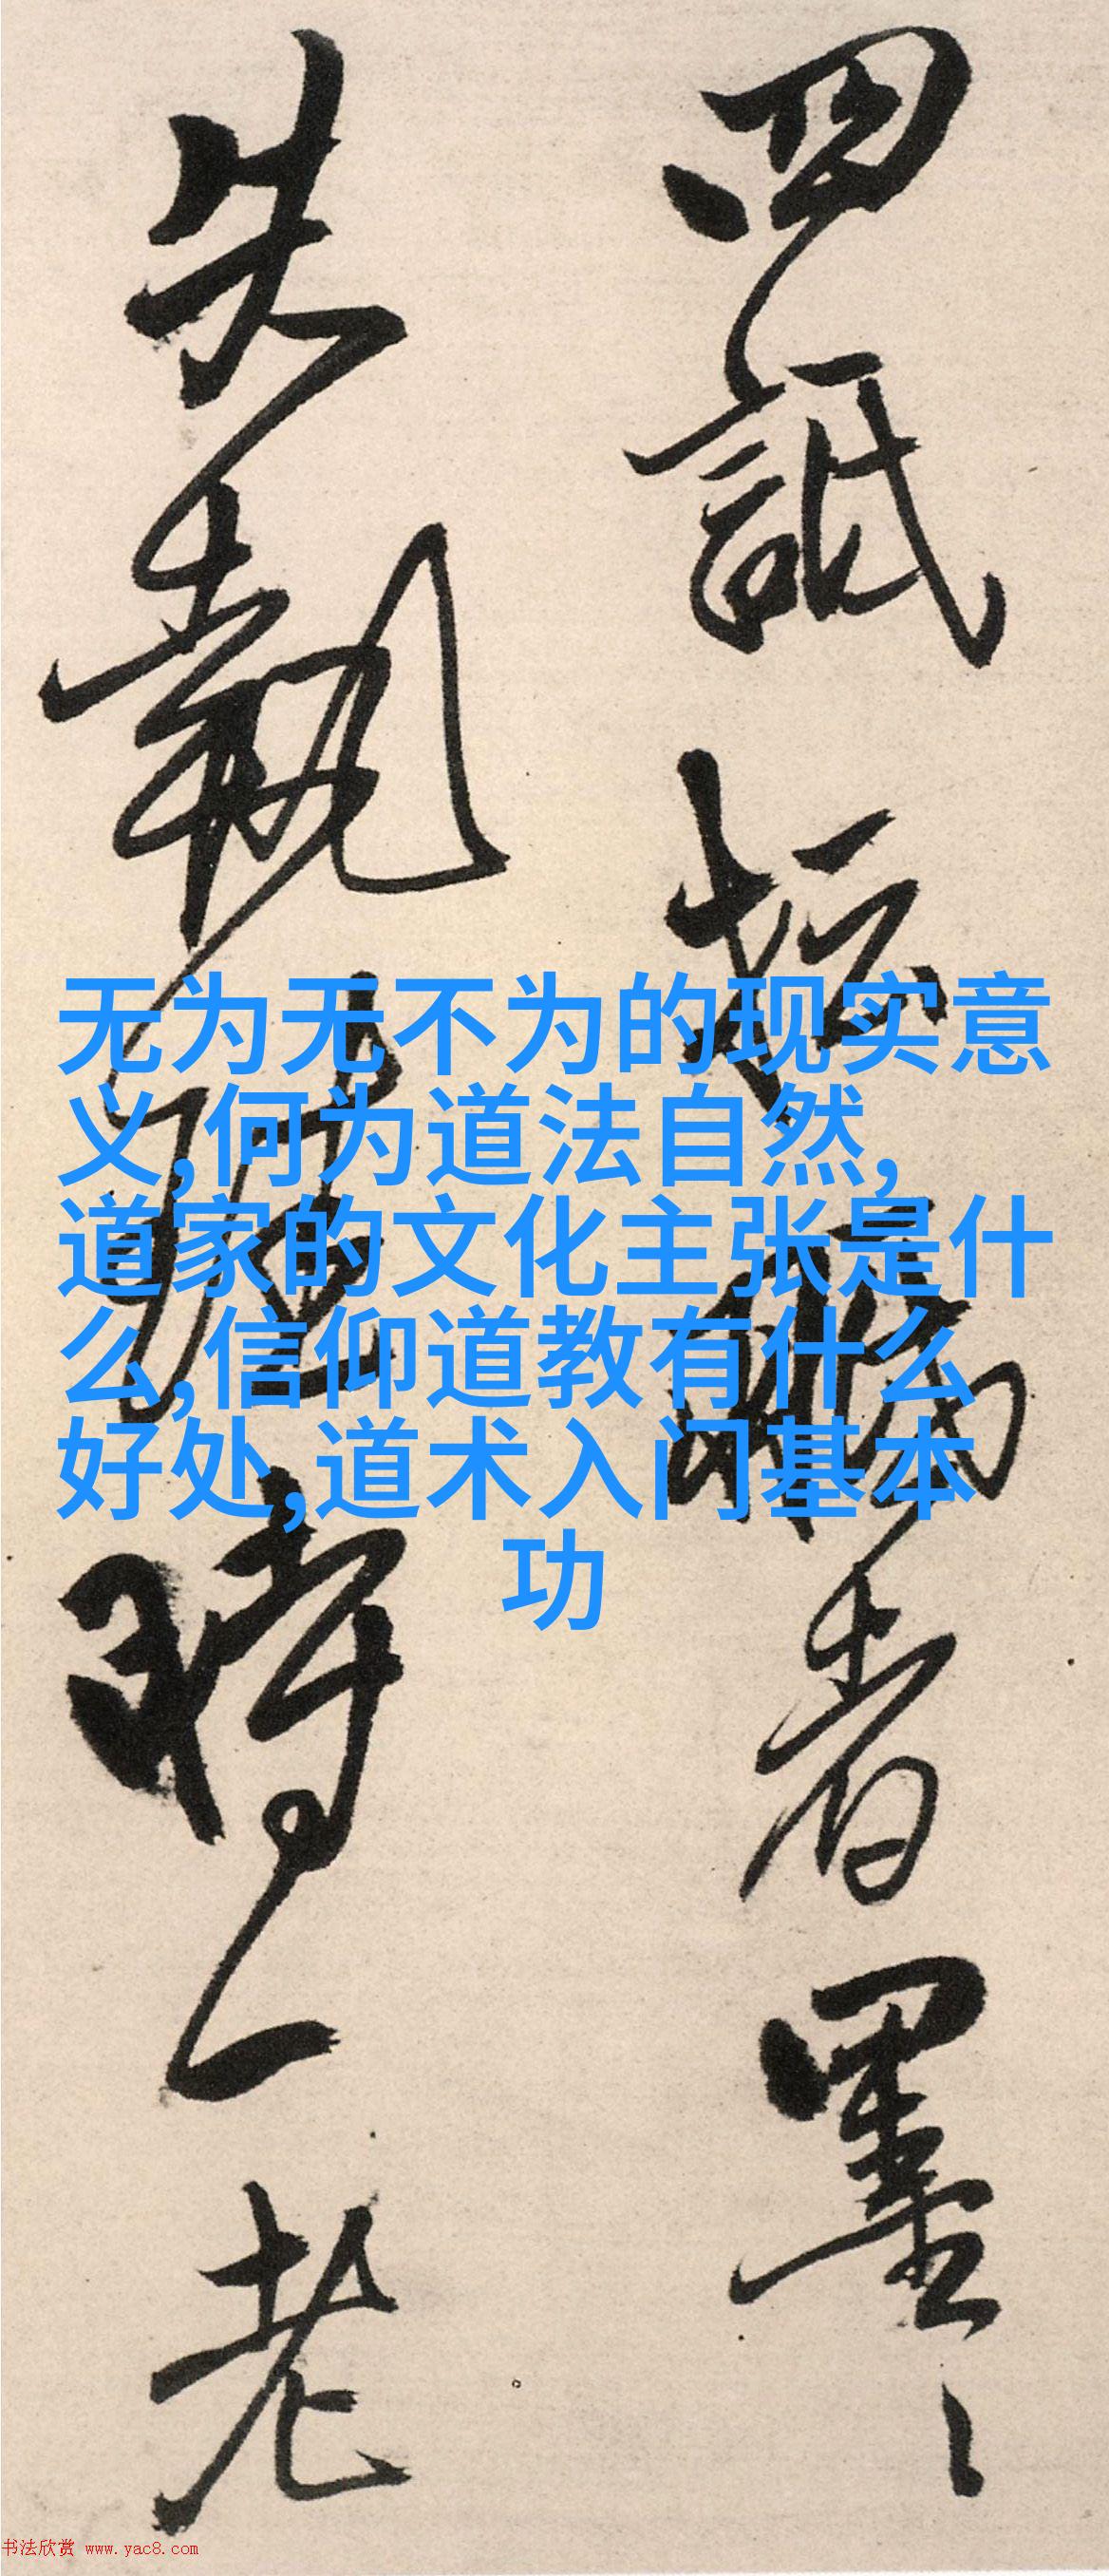 四詆
者墨
失執
時一老
无为无不为的现实意
义,何为道法自然,
道家的文化主张是什
么,信仰道教有什么
好处,道术入门基本
功
书法欣赏 www.yac8.com